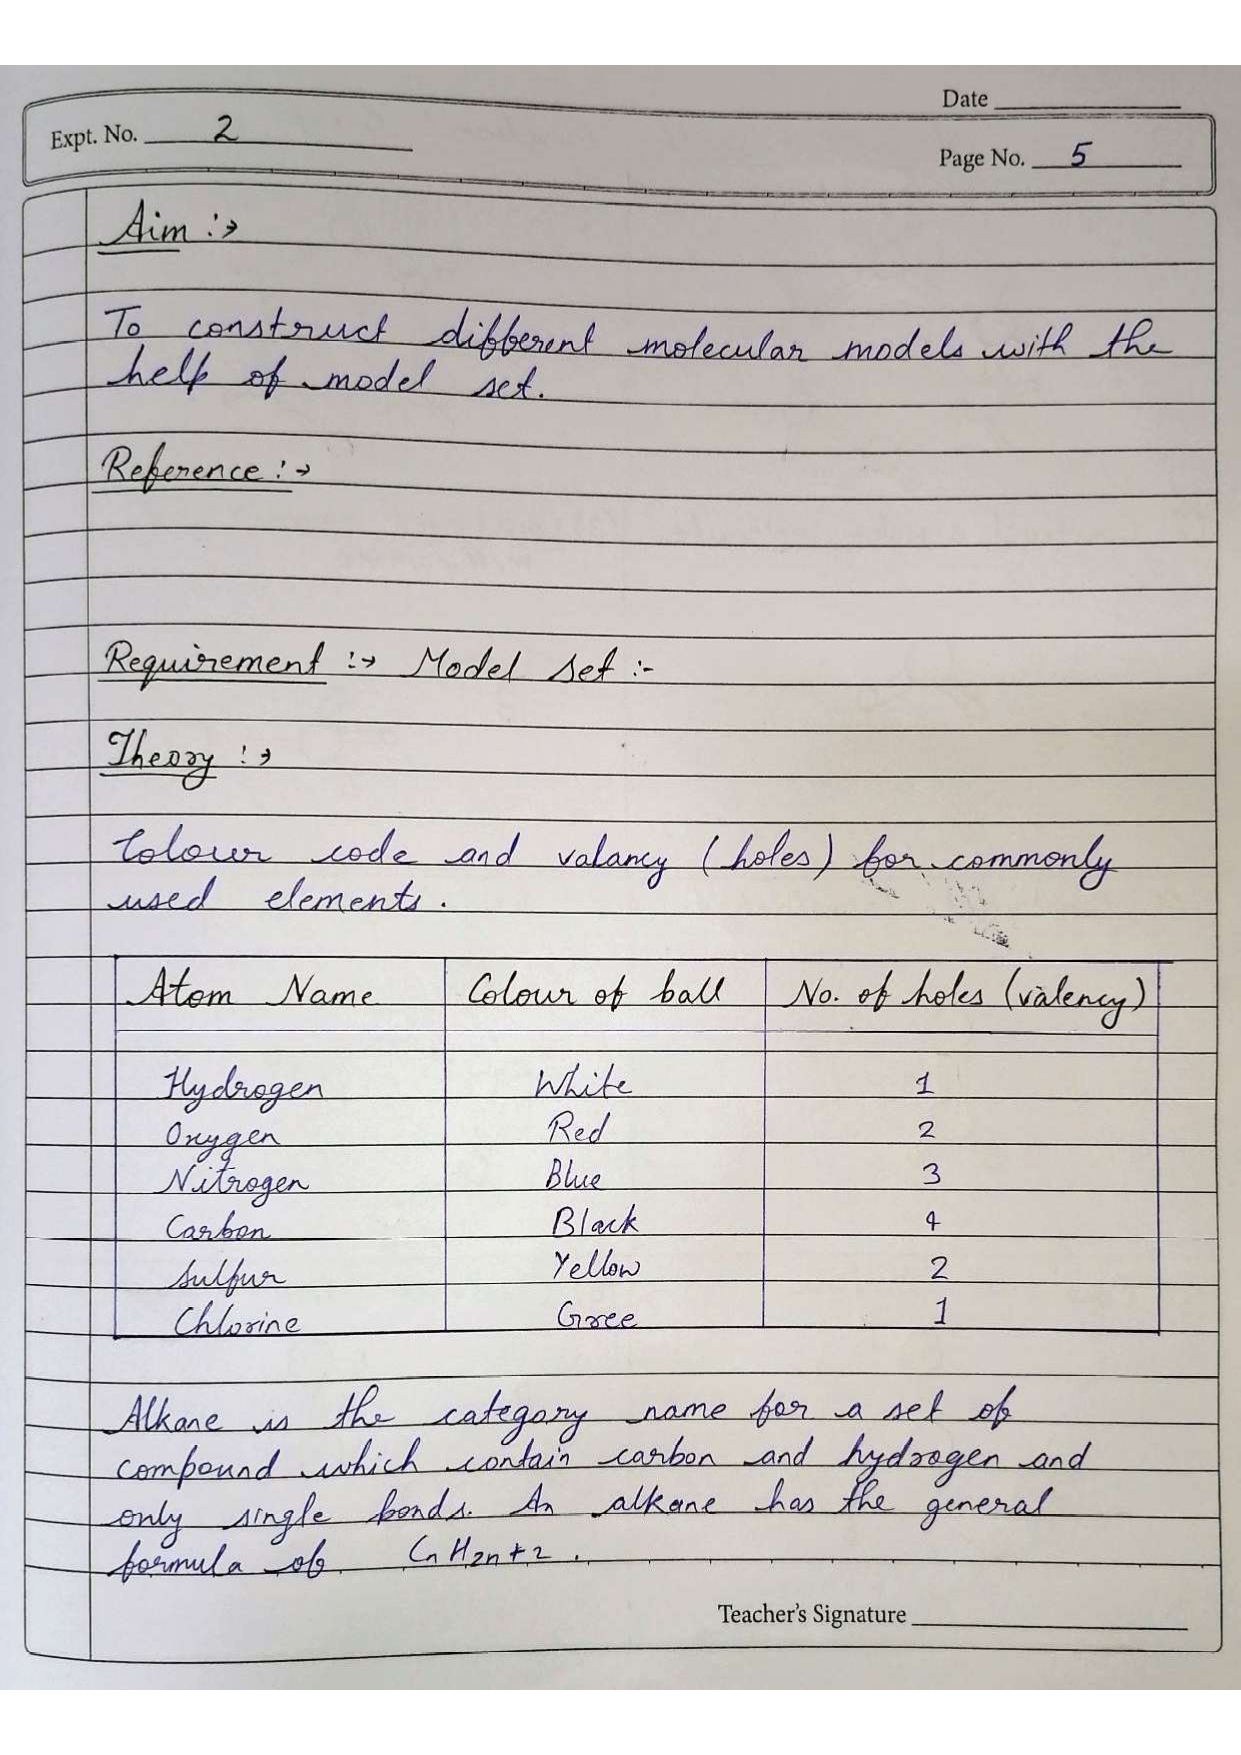 Date
Expt. No. 2
Page No. 5
Aim :→
To construct different molecular models with the
help of model set.
Reference :→
Requirement :→ Model set :-
Theory :→
Colour code and valancy (holes) for commonly
used elements.
Atom Name Colour of ball No. of holes (valency)
Hydrogen White 1
Oxygen Red 2
Nitrogen Blue 3
Carbon Black 4
Sulfur Yellow 2
Chlorine Gree 1
Alkane is the category name for a set of
compound which contain carbon and hydrogen and
only single bonds. An alkane has the general
formula of CnH2n+2.
Teacher's Signature